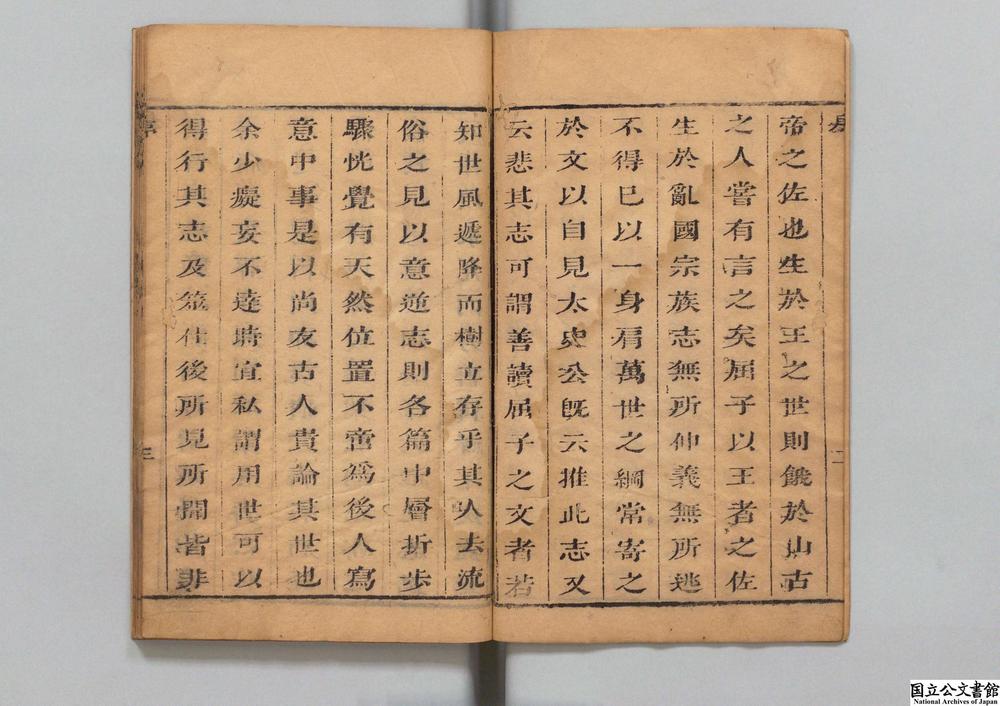 帝之佐也生於王之世則餓於山古
之人嘗有言之矣屈子以王者之佐
生於亂國宗族志無所伸義無所逃
不得已以一身肩萬世之綱常寄之
於文以自見太史公旣云推此志又
云悲其志可謂善讀屈子之文者若
二
知世風遞降而樹立存乎其人去流
俗之見以意逆志則各篇中層折步
驟恍覺有天然位置不啻爲後人寫
意中事是以尚友古人貴論其世也
余少癡妄不達時宜私謂用世可以
得行其志及筮仕後所見所聞皆非
序
三
国立公文書館
National Archives of Japan